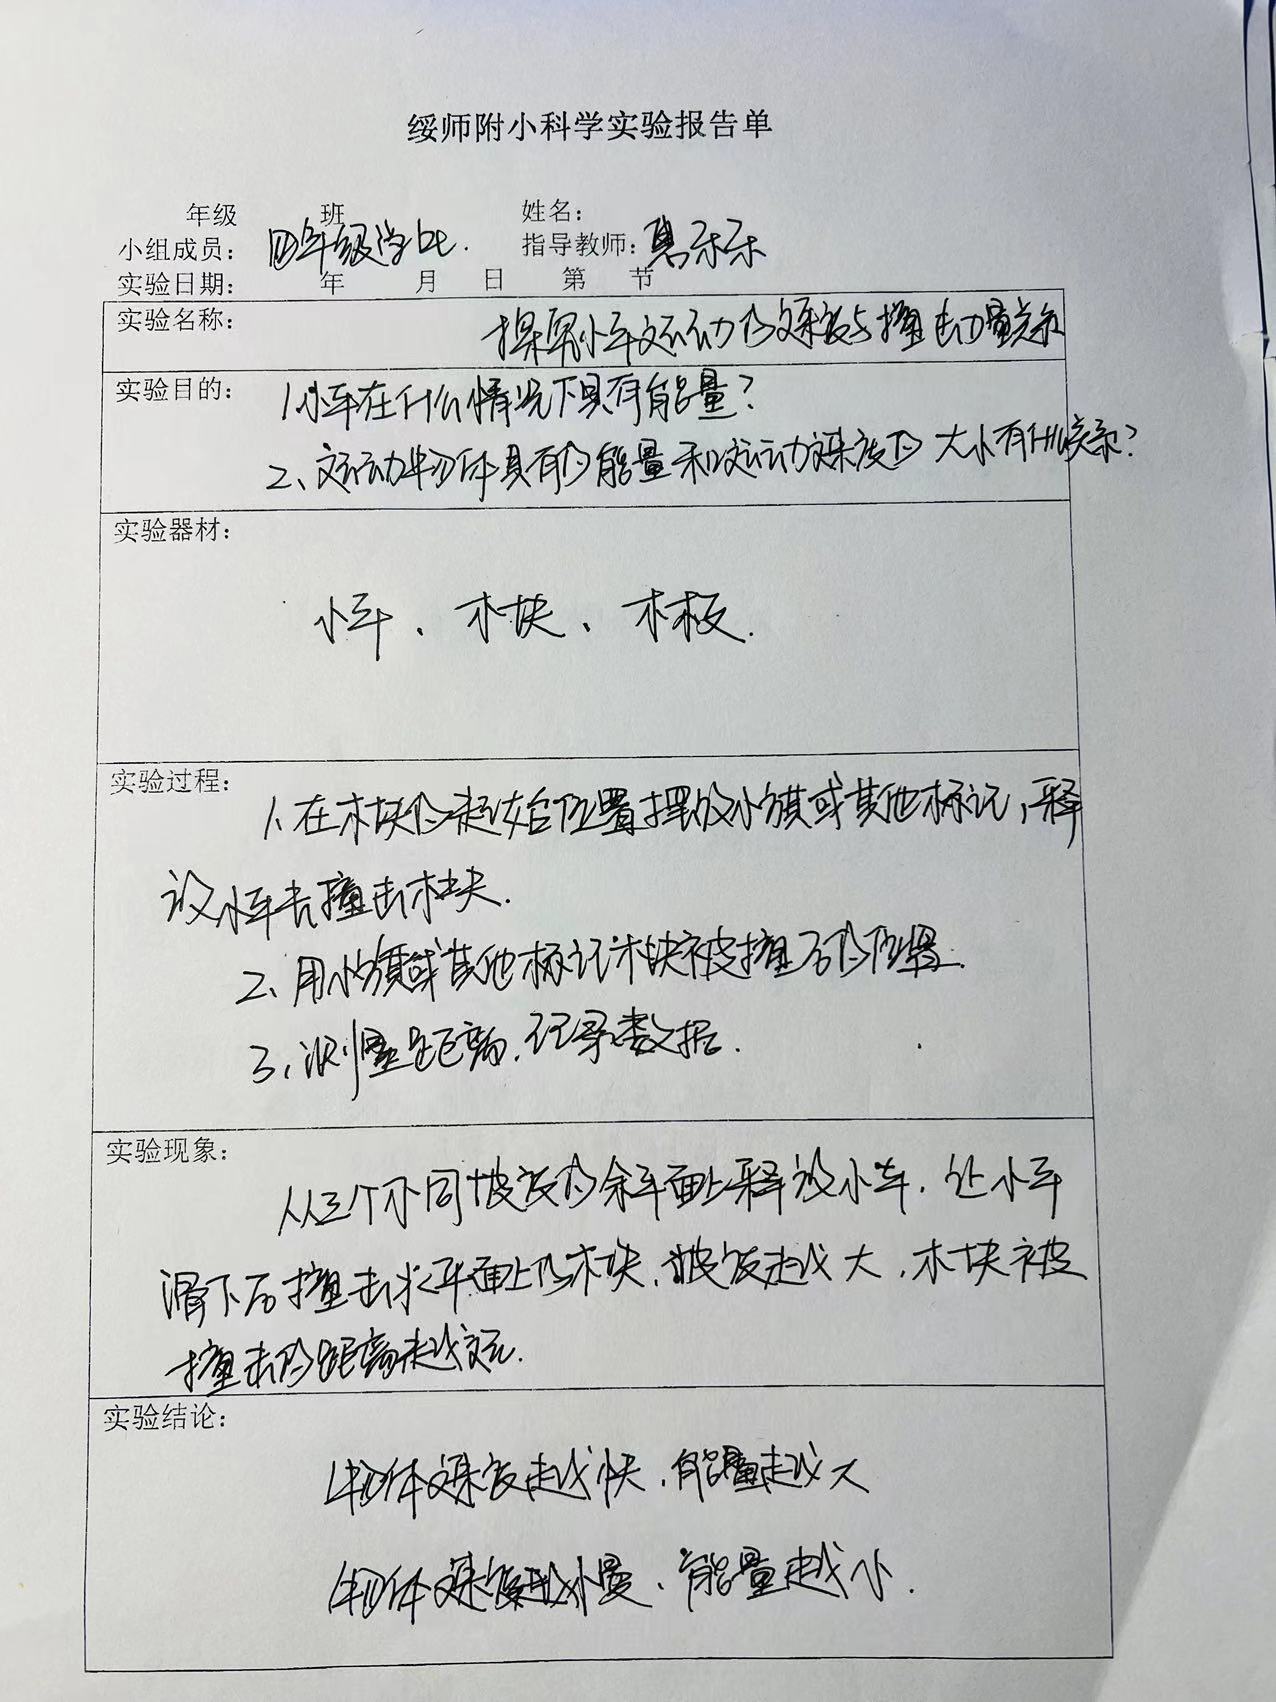 绥师附小科学实验报告单
年级 班 姓名：
小组成员： 四年级学生. 指导教师：
实验日期： 年 月 日 第 节
实验名称： 探究小车运动的速度与撞击力量关系
实验目的： 1.小车在什么情况下具有能量?
2、运动物体具有的能量和运动速度的大小有什么关系?
实验器材：
小车、木块、木板.
实验过程：
1、在木块的起始位置摆放小旗或其他标记,释
放小车去撞击木块.
2、用小旗或其他标记木块被撞后的位置.
3、测量距离,记录数据.
实验现象：
从三个不同坡度的斜面上释放小车,让小车
滑下后撞击水平面上的木块,坡度越大,木块被
撞击的距离越远.
实验结论：
物体速度越快,能量越大
物体速度越慢,能量越小.